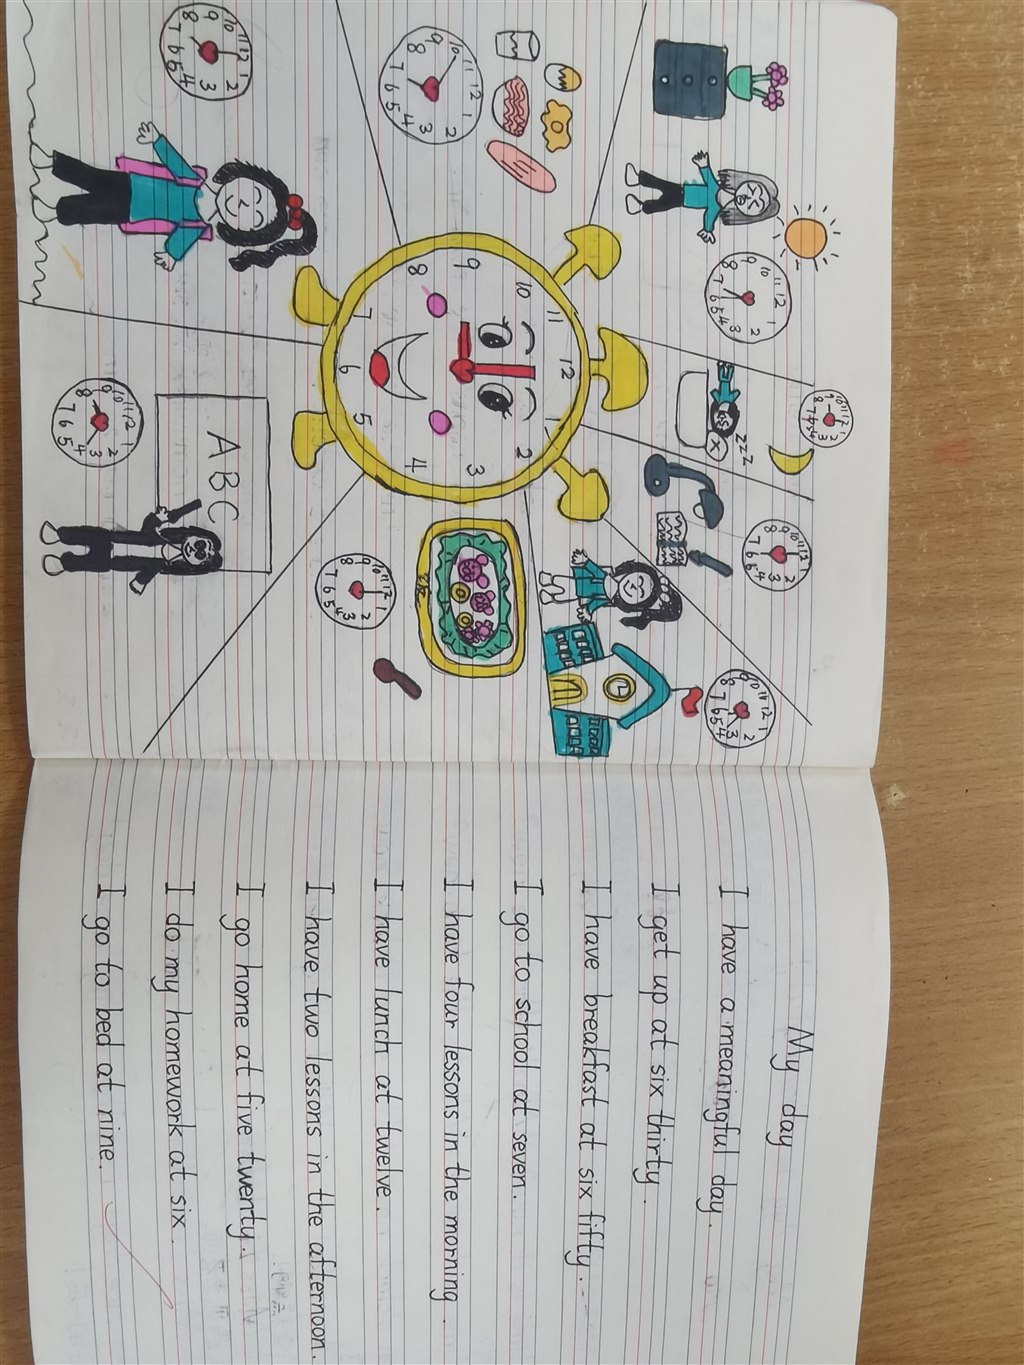 My day
I have a meaningful day.
I get up at six thirty.
I have breakfast at six fifty.
I go to school at seven.
I have four lessons in the morning.
I have lunch at twelve.
I have two lessons in the afternoon.
I go home at five twenty.
I do my homework at six.
I go to bed at nine.
ABC
zzz
12
1
2
3
4
5
6
7
8
9
10
11